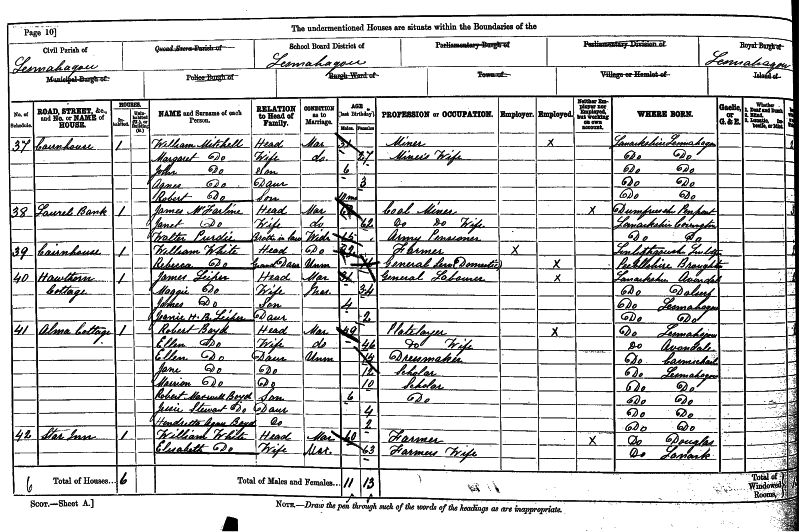 Page 10]
The undermentioned Houses are situate within the Boundaries of the
Civil Parish of
Lesmahagow
Quoad Sacra Parish of
School Board District of
Lesmahagow
Parliamentary Burgh of
Parliamentary Division of
Royal Burgh of
Lesmahagow
Municipal Burgh of
Police Burgh of
Burgh Ward of
Town of
Village or Hamlet of
Island of
No. of Schedule.
ROAD, STREET, &c., and No. or NAME of HOUSE.
HOUSES.
NAME and Surname of each Person.
RELATION to Head of Family.
CONDITION as to Marriage.
AGE (last Birthday).
Males.
Females.
PROFESSION or OCCUPATION.
Employer.
Employed.
Neither Employer nor Employed, but working on own account.
WHERE BORN.
Gaelic, or G. & E.
Whether
37 Cairnhouse 1 William Mitchell Head Mar Miner X Lanarkshire Lesmahagow
Margaret Do Wife do 27 Miner's Wife Do Do
John Do Son 6 Do Do
Agnes Do Daur 3 Do Do
Robert Do Son 10 mo Do Do
38 Laurel Bank 1 James Head Mar Coal Miner X
Janet Do Wife do 62 Do Do Wife Lanarkshire Covington
Walter Purdie Widr Army Pensioner Do Do
39 Cairnhouse 1 William White Head Do Farmer X
Rebecca Do Grand Daur Unm General Serv (Domestic) X Broughton
40 Hawthorn Cottage 1 James Head Mar General Labourer X Lanarkshire Avondale
Maggie Do Wife 34 Do
James Do Son 4 Do Lesmahagow
Daur 2 Do Do
41 Alma Cottage 1 Robert Boyd Head Mar 49 Platelayer X Do Lesmahagow
Ellen Do Wife do 46 Do Wife Do Avondale
Ellen Do Daur Unm Dressmaker Do Carmichael
Jane Do Do 12 Scholar Do Lesmahagow
Marion Do Do 10 Scholar Do Do
Robert Maxwell Boyd Son 6 Do Do Do
Jessie Stewart Do Daur 4 Do Do
Henrietta Boyd Do 2 Do Do
42 Star Inn 1 William White Head Mar 60 Farmer X Do Douglas
Elizabeth Do Wife Mar 63 Farmers Wife Do Lanark
6 Total of Houses... 6
Total of Males and Females... 11 13
Total of Windowed Rooms,
SCOT.—Sheet A.]
NOTE.—Draw the pen through such of the words of the headings as are inappropriate.